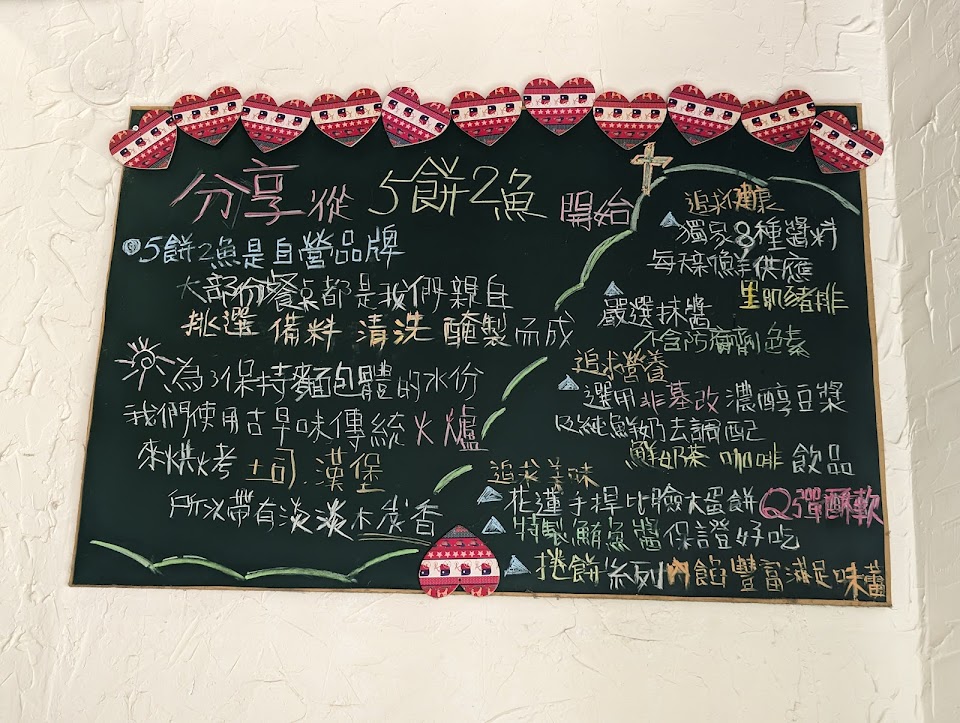 分享從 5餅2魚 開始
◎5餅2魚是自營品牌
大部份餐桌都是我們親自
挑選 備料 清洗 醃製而成
為了保持麵包體的水份
我們使用古早味傳統火爐
來烘烤 土司 漢堡
所以帶有淡淡木炭香
追求健康
獨家8種醬料
每天新鮮供應
里肌豬排
嚴選抹醬
不含防腐劑色素
追求營養
選用非基改濃醇豆漿
以純鮮奶去調配
鮮奶茶 咖啡 飲品
追求美味
花蓮手捍比臉大蛋餅Q彈酥軟
特製鮪魚醬保證好吃
捲餅系列內餡豐富滿足味蕾